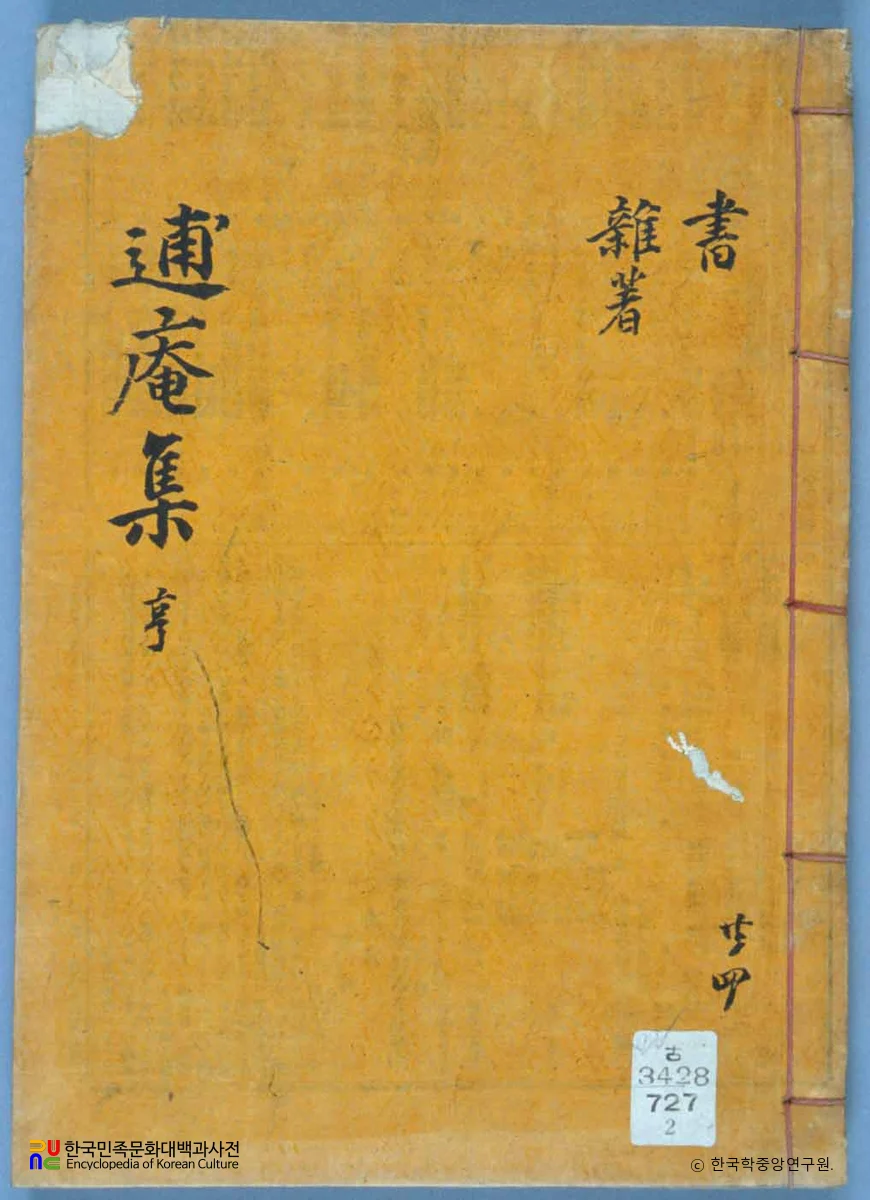 書
雜著
逋庵集 亨
共四
古
3428
727
2
한국민족문화대백과사전
Encyclopedia of Korean Culture
ⓒ 한국학중앙연구원.